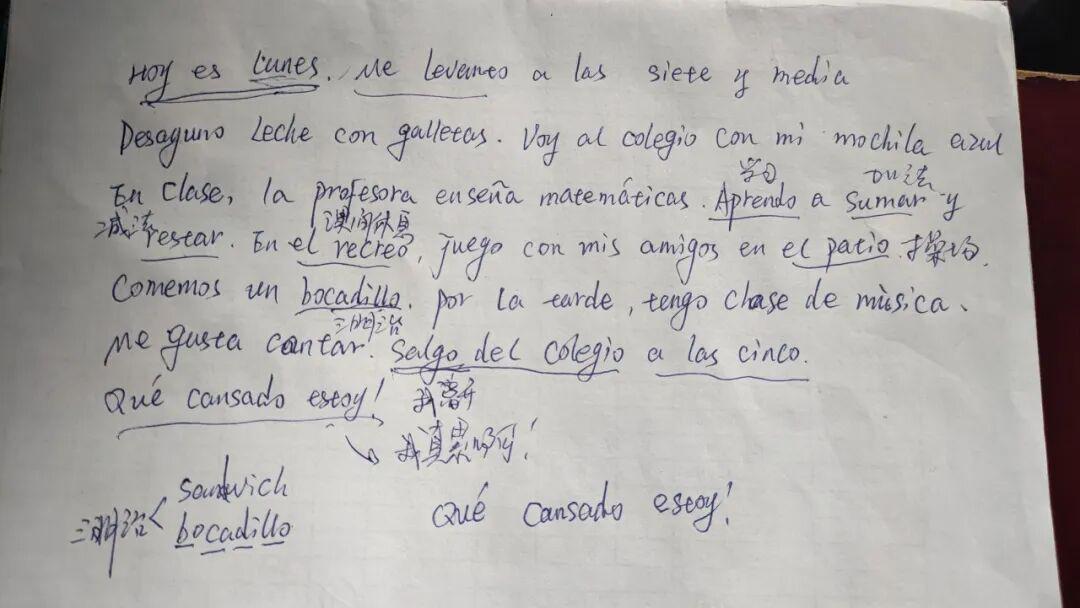 Hoy es Lunes. Me levanto a las siete y media
Desayuno leche con galletas. Voy al colegio con mi mochila azul
学习 加法
En clase, la profesora enseña matemáticas. Aprendo a sumar y
减法 课间休息
restar. En el recreo, juego con mis amigos en el patio. 操场.
Comemos un bocadillo. por la tarde, tengo chase de mùsica.
三明治
Me gusta cantar. Salgo del colegio a las cinco.
Qué cansado estoy! 我离开
我真累啊!
sandwich
三明治 <
bocadillo
Qué cansado estoy!